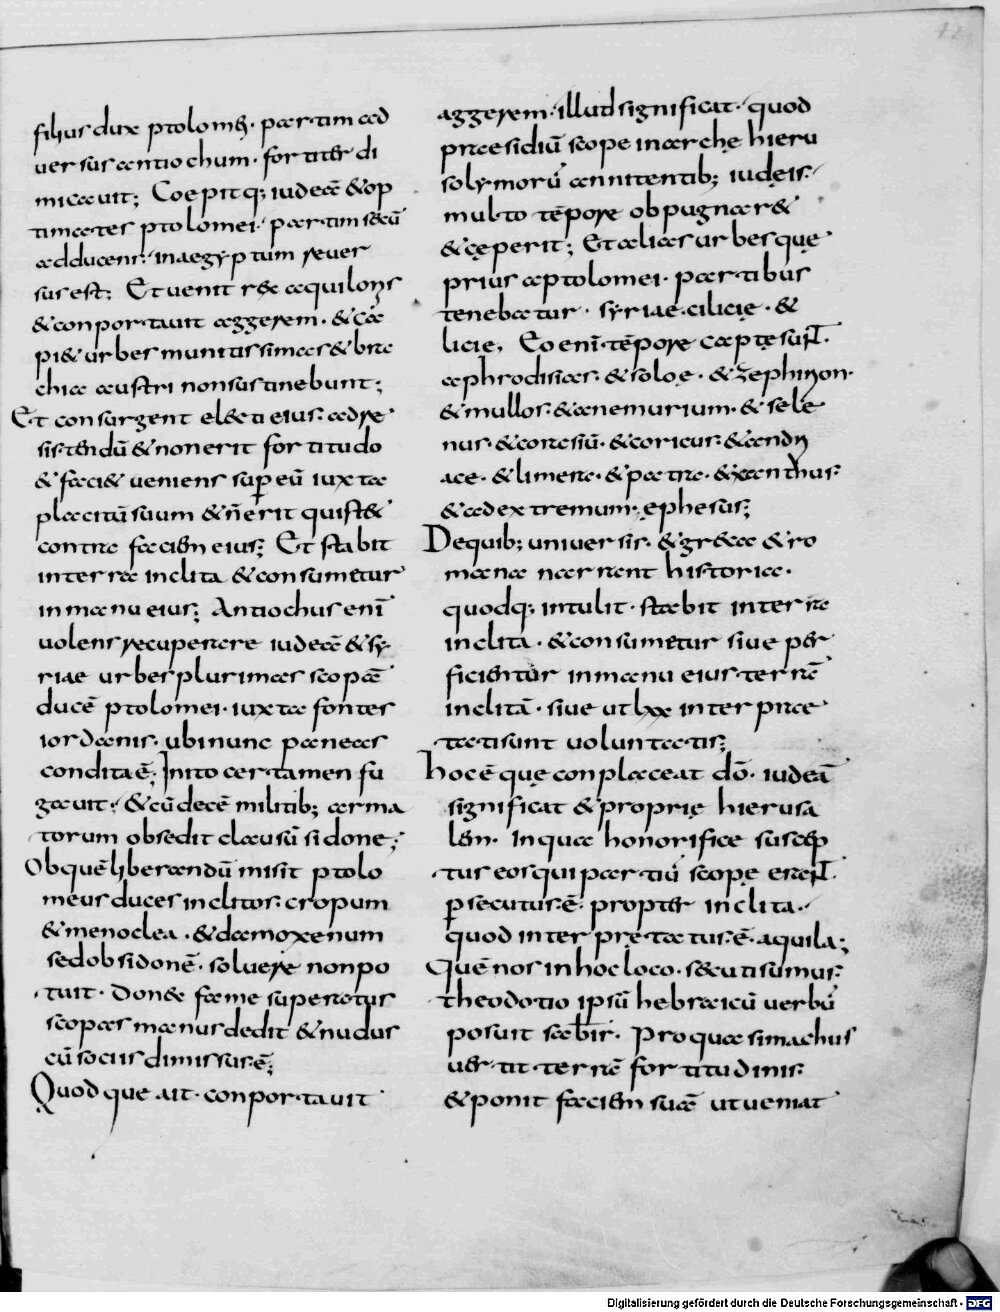 filius dux ptolomę. partim ad
uersus antiochum. fortit̄ di
micauit; Coepitq; iudeā & op
timates ptolomei. partim secū
adducens. in aegyptum reuer
sus est; Et uenit rex aquilonis
& conportauit aggerem. & ca
pi& urbes munitissimas & bra
chia austri non sustinebunt;
Et consurgent electi eius. ad re
sistendū & non erit fortitudo
& faci& ueniens sup eū iuxta
placitū suum & ñ erit qui st&
contra faciem eius; Et stabit
in terra inclita & consumetur
in manu eius; Antiochus enī
uolens recuperare iudeā & sy
riae urbes plurimas scopā
ducē ptolomei. iuxta fontes
iordanis. ubi nunc paneas
condita ē. Inito certamen fu
gauit. & cū decē militib; arma
torum obsedit clausū sidone;
Ob quē liberandū misit ptolo
meus duces inclitos. cropum
& menoclea. & damoxenum
sed obsidonē. soluere non po
tuit. Donec fame superatus
scopas manus dedit & nudus
cū sociis dimissus ē;
Quod que ait. conportauit
aggerem. illud significat. quod
praesidiū scope in arche hieru
solymorū annitentib; iudeis.
multo tēpore obpugnar&
& ceperit; Et alias urbes quę
prius a ptolomei. partibus
tenebatur. syriae. cilicię. &
licie, Eo enī tēpore captę sunt.
aphrodisias. & soloę. & zephirion.
& mullos. & anemurium. & sele
nus. & coracsiū. & coricus. & andri
ace. & limera. & patra. & xanthus.
& ad extremum. ephesus;
De quib; uniuersis. & greca & ro
mana narrant historia.
quodq; intulit. stabit in terra
inclita. & consumetur siue per
ficientur in manu eius. terrā
inclitā. siue ut lxx interpræ
tati sunt uoluntatis;
hoc ē quę conplaceat dō. iudeā
significat & proprię hierusa
lem. In qua honorifice suscep
tus eos qui partiū scopę erant.
persecutus ē. propter inclita.
quod interprętatus ē. aquila;
Quē nos in hoc loco. secuti sumus.
theodotio ipsū hebraicū uerbū
posuit sabir. Pro qua simachus
uertit. terrā fortitudinis.
& ponit faciem suā ut ueniat
Digitalisierung gefördert durch die Deutsche Forschungsgemeinschaft - DFG